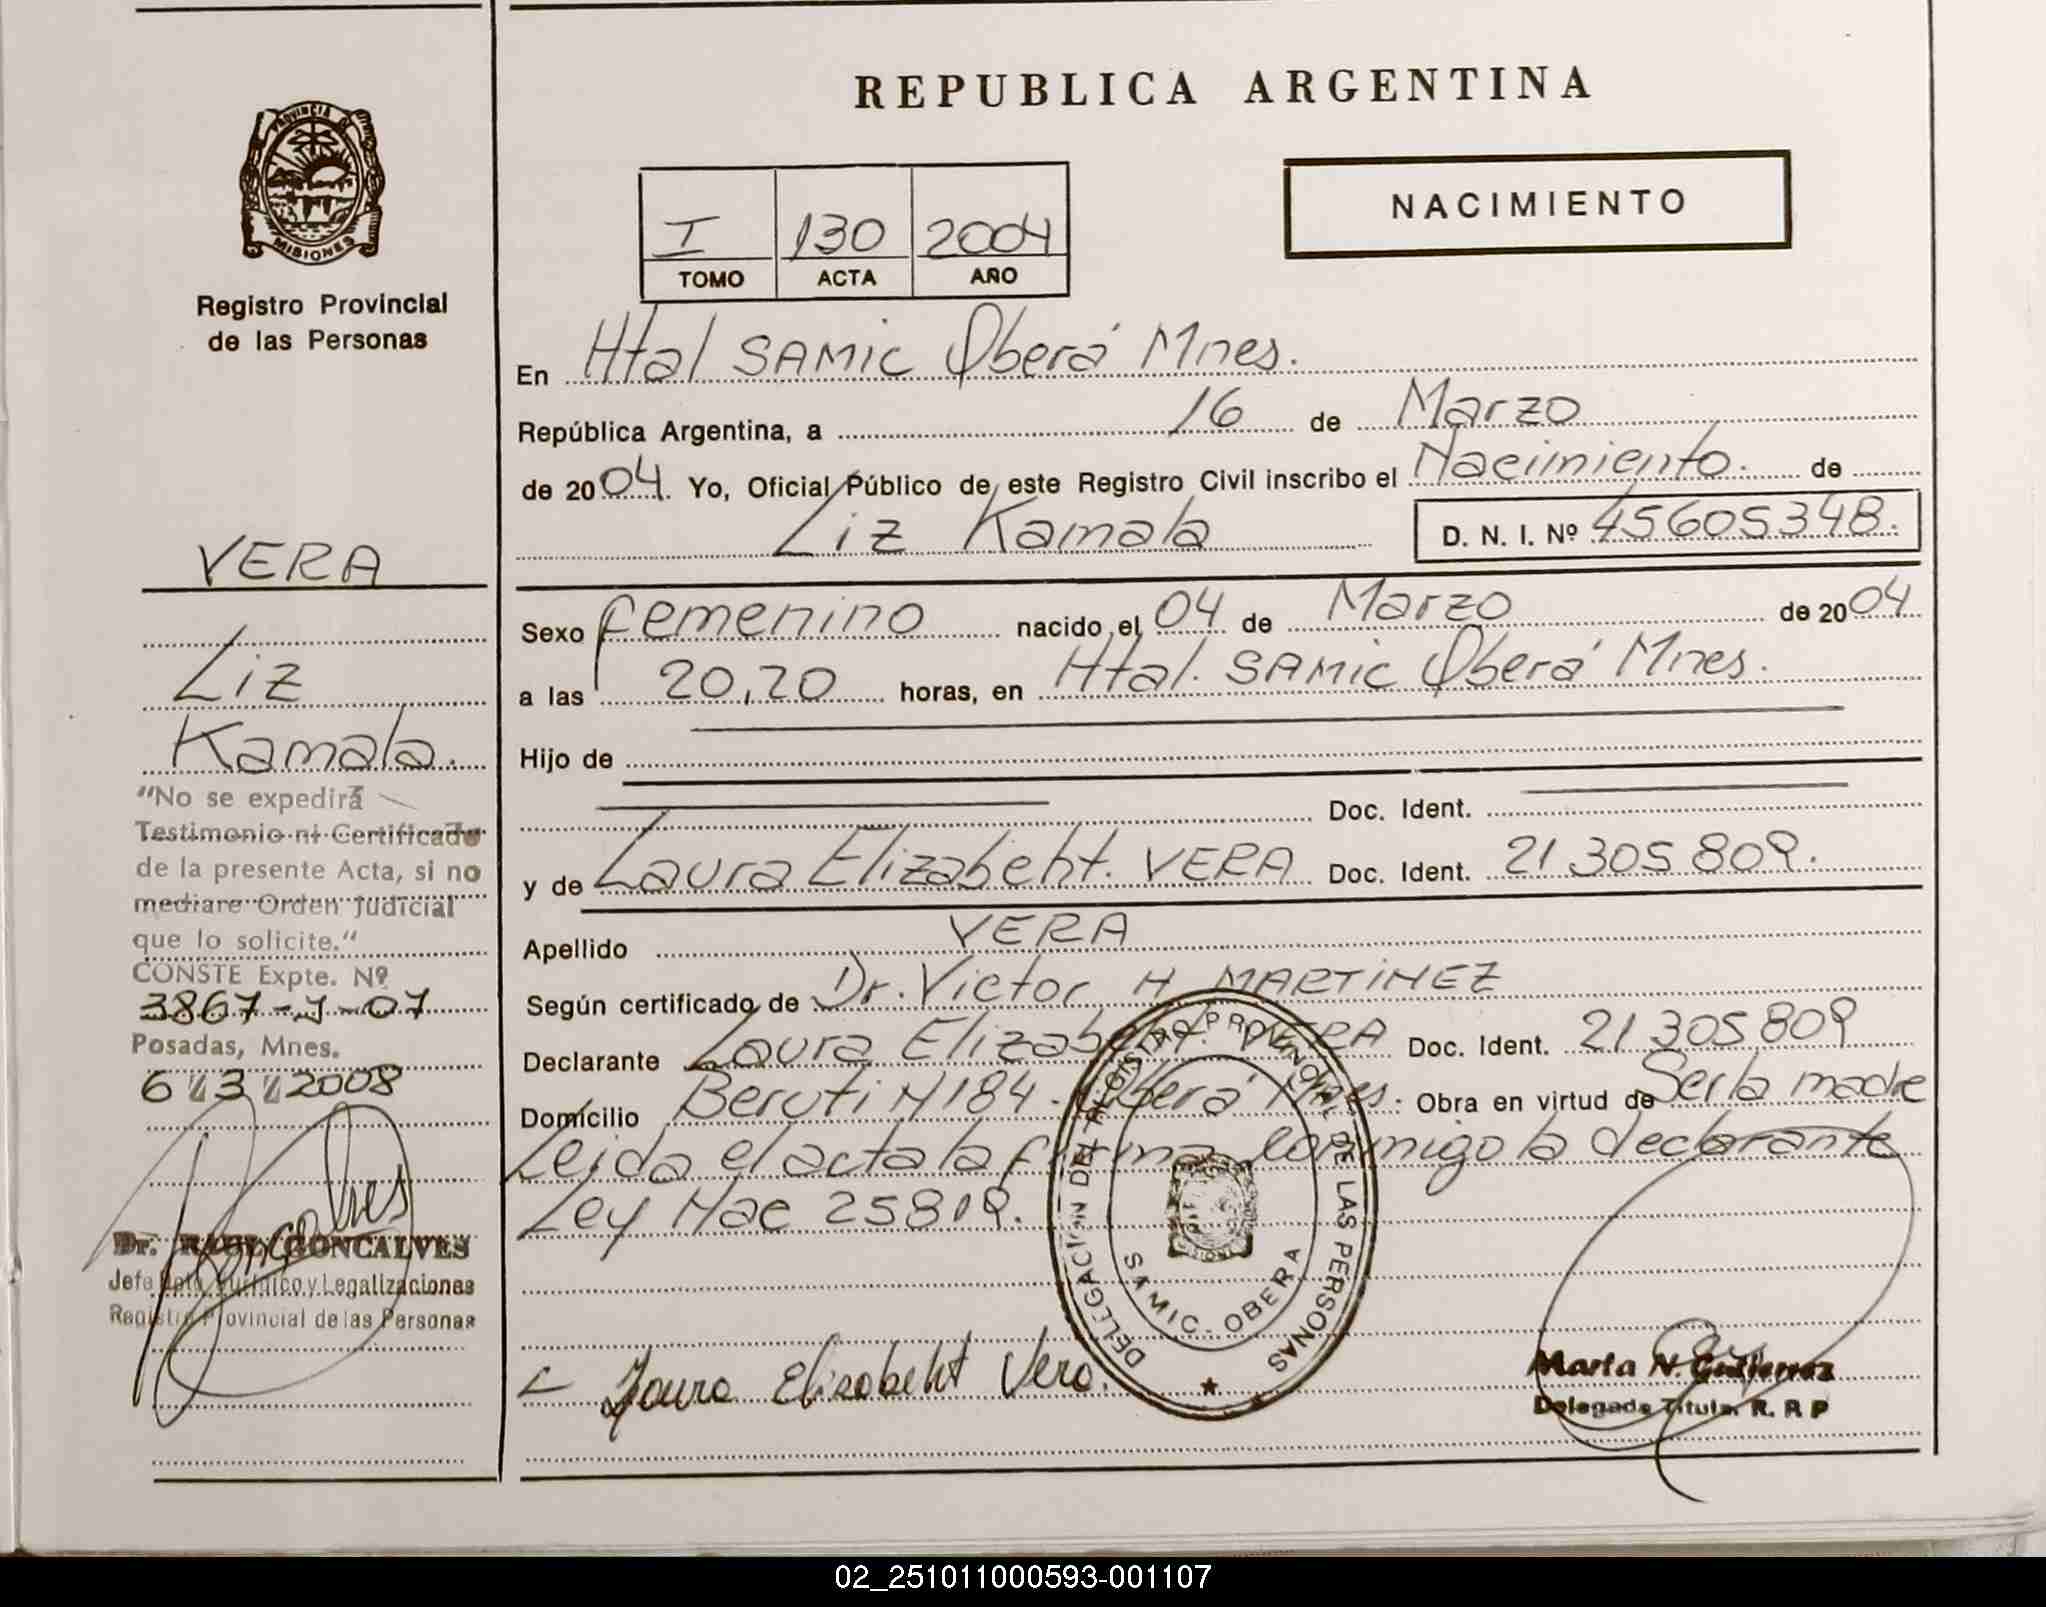 REPUBLICA ARGENTINA
PROVINCIA DE
MISIONES
Registro Provincial
de las Personas
NACIMIENTO
I 130 2004
TOMO ACTA AÑO
En Htal SAMIC Oberá Mnes.
República Argentina, a 16 de Marzo
de 2004. Yo, Oficial Público de este Registro Civil inscribo el Nacimiento. de
Liz Kamala D. N. I. Nº 45605348.
VERA
Liz
Kamala.
Sexo femenino nacido el 04 de Marzo de 2004
a las 20,20 horas, en Htal. SAMIC Oberá Mnes.
Hijo de
Doc. Ident.
y de Laura Elizabeht. VERA Doc. Ident. 21 305 809.
Apellido VERA
Según certificado de Dr. Victor H MARTINEZ
Declarante Laura Elizabeht. VERA Doc. Ident. 21 305 809
Domicilio Beruti Nº 184. Oberá Mnes. Obra en virtud de Ser la madre
Leida el acta la firma conmigo la declarante
Ley Nac 25819.
"No se expedirá
Testimonio ni Certificado
de la presente Acta, si no
mediare Orden Judicial
que lo solicite."
CONSTE Expte. Nº
3867-J-07
Posadas, Mnes.
6 / 3 / 2008
Dr. RAUL GONCALVES
Jefe Dpto. Jurídico y Legalizaciones
Registro Provincial de las Personas
DELEGACION DEL REGISTRO PROVINCIAL DE LAS PERSONAS
MISIONES
SAMIC - OBERA
Laura Elisabeht Vera.
Marta N. Gutierrez
Delegada Titular R. R P
02_251011000593-001107